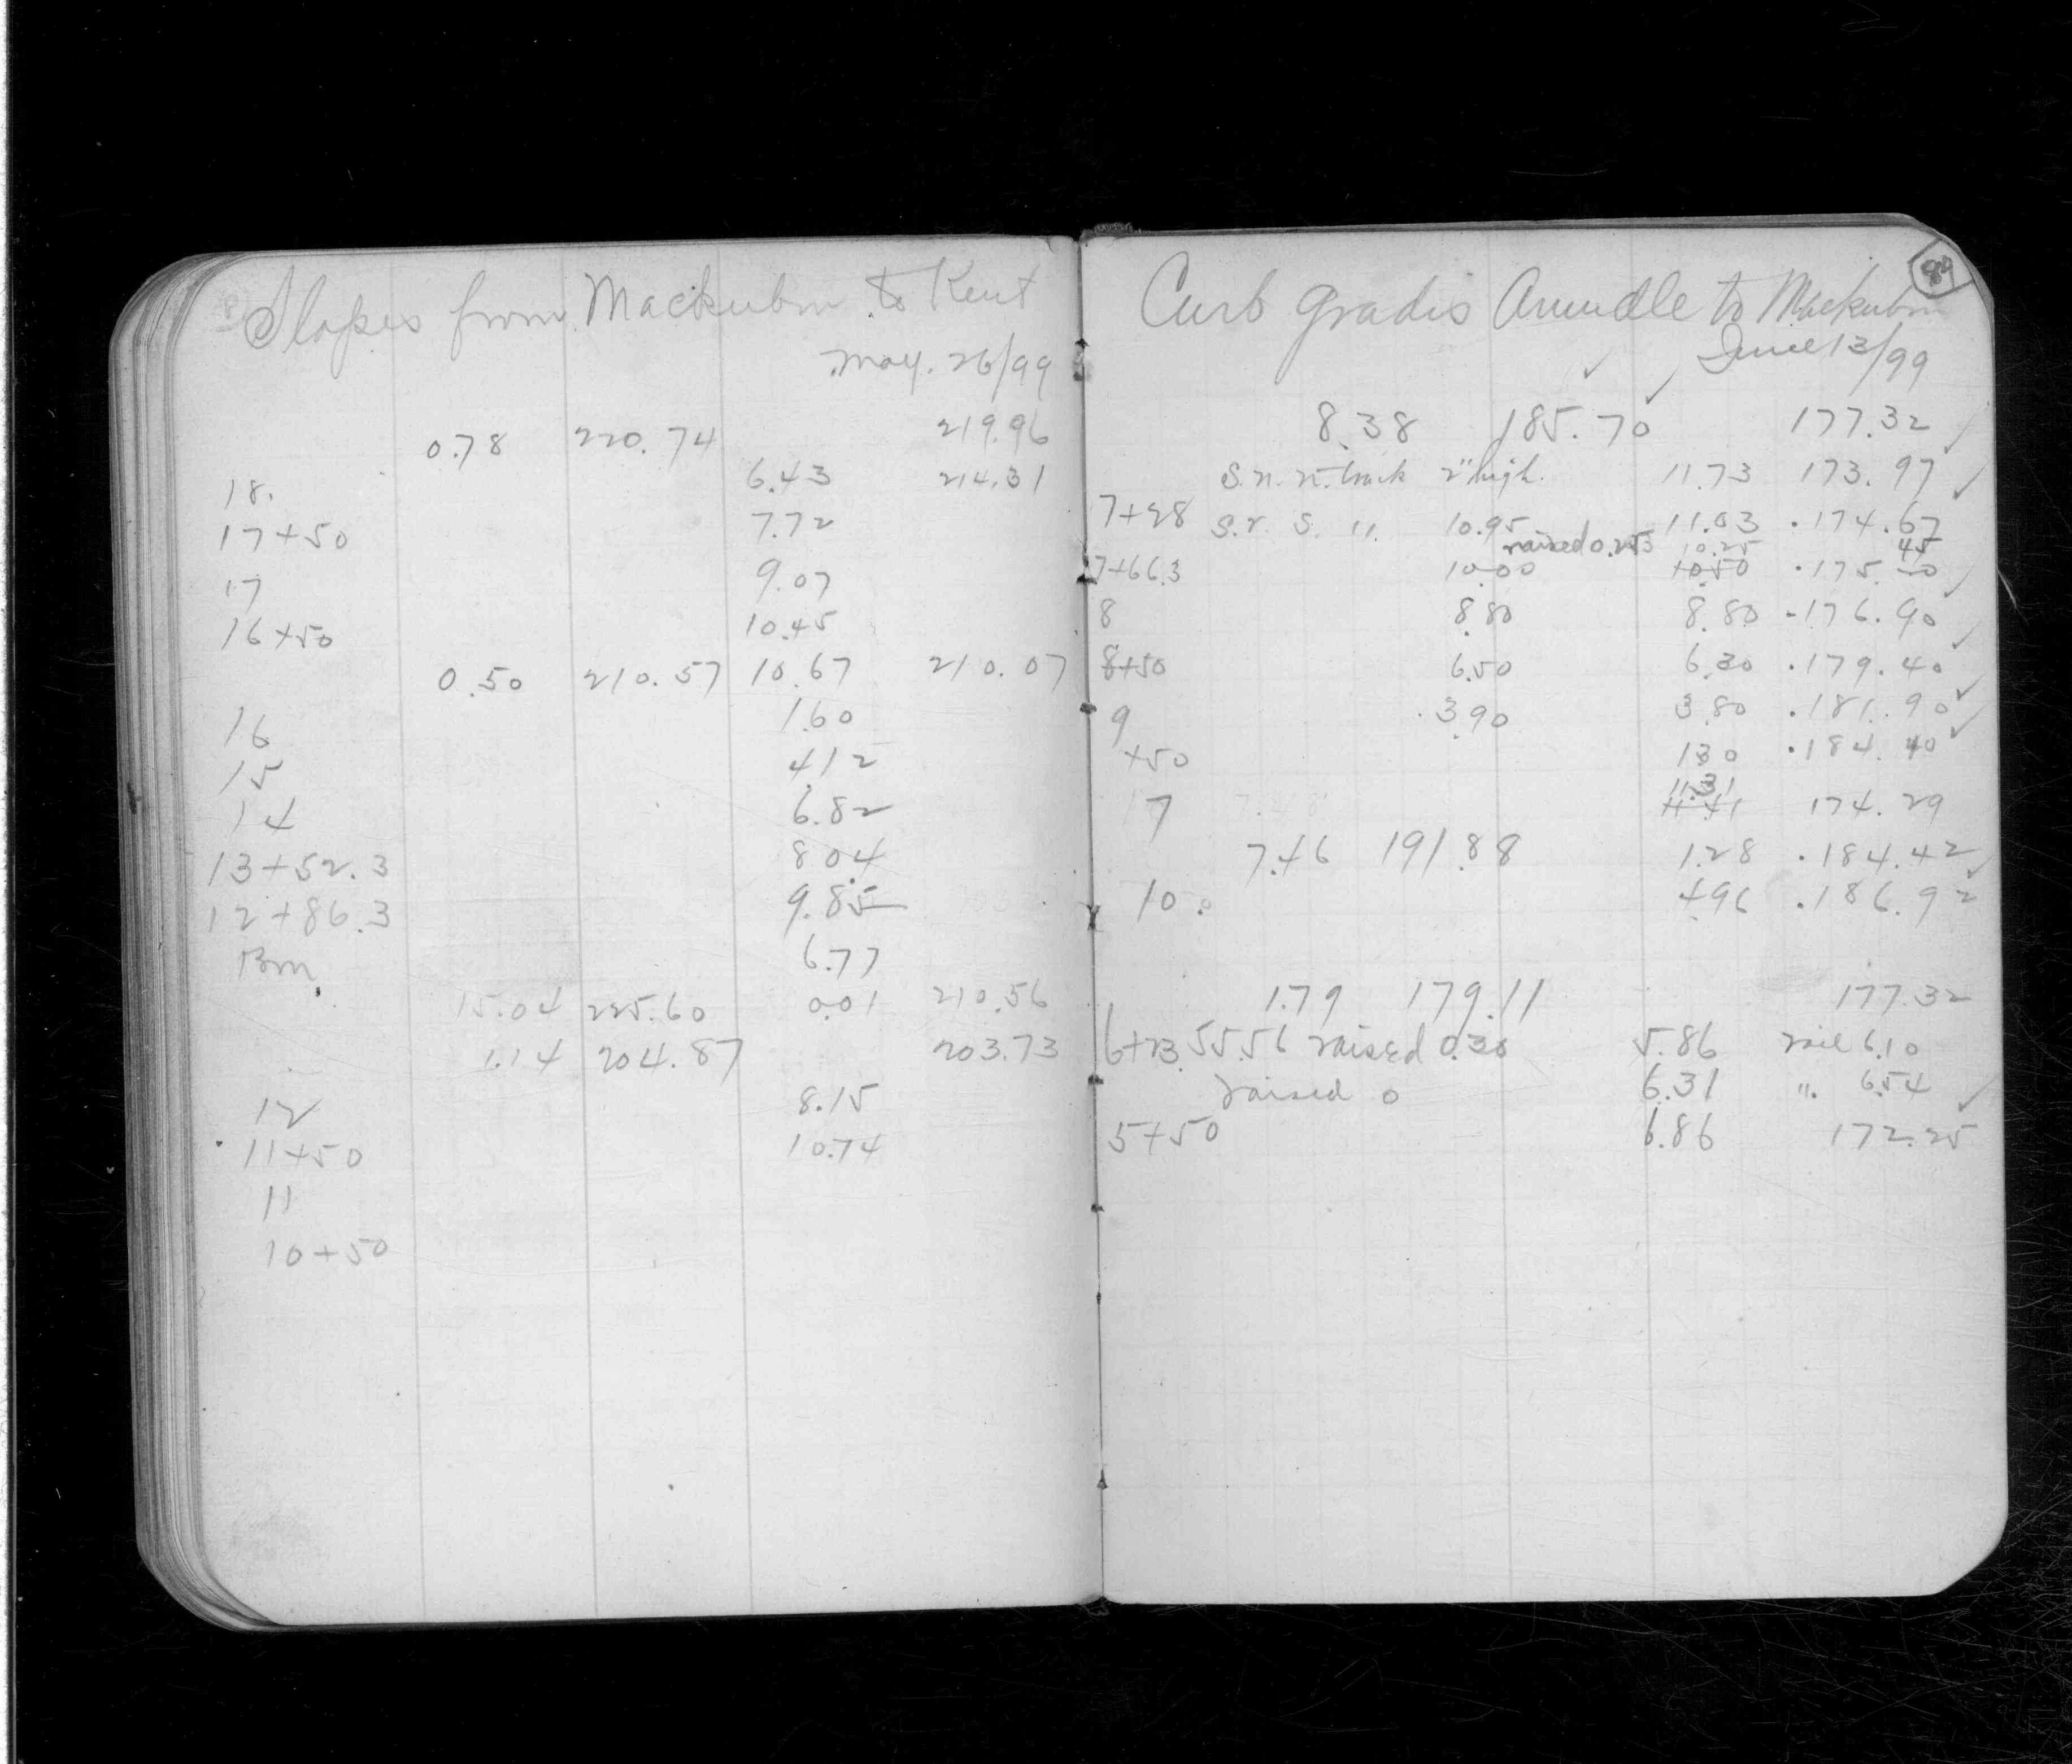 Slopes from Mackubin to Kent
May. 26/99
0.78 220.74 219.96
18. 6.43 214.31
17+50 7.72
17 9.07
16+50 10.45
0.50 210.57 10.67 210.07
16 1.60
15 4.12
14 6.82
13+52.3 8.04
12+86.3 9.85
Bm 6.77
15.04 225.60 0.01 210.56
1.14 204.87 203.73
12 8.15
11+50 10.74
11
10+50
84
Curb grades Arundle to Mackubin
June 13/99
8.38 185.70 177.32
S.r. n. track 2" high. 11.73 173.97
7+28 S.r. S. 11. 10.95 11.03 174.67
raised 0.25 10.25 45
7+66.3 10.00 10.50 175.
8 8.80 8.80 176.90
8+50 6.50 6.30 179.40
9 3.90 3.80 181.90
+50 1.30 184.40
11.31
7 11.41 174.29
7.46 191.88 1.28 184.42
10 4.96 186.92
1.79 179.11 177.32
6+23 55.56 raised 0.30 5.86 rail 6.10
raised 0 6.31 ". 6.54
5+50 6.86 172.25